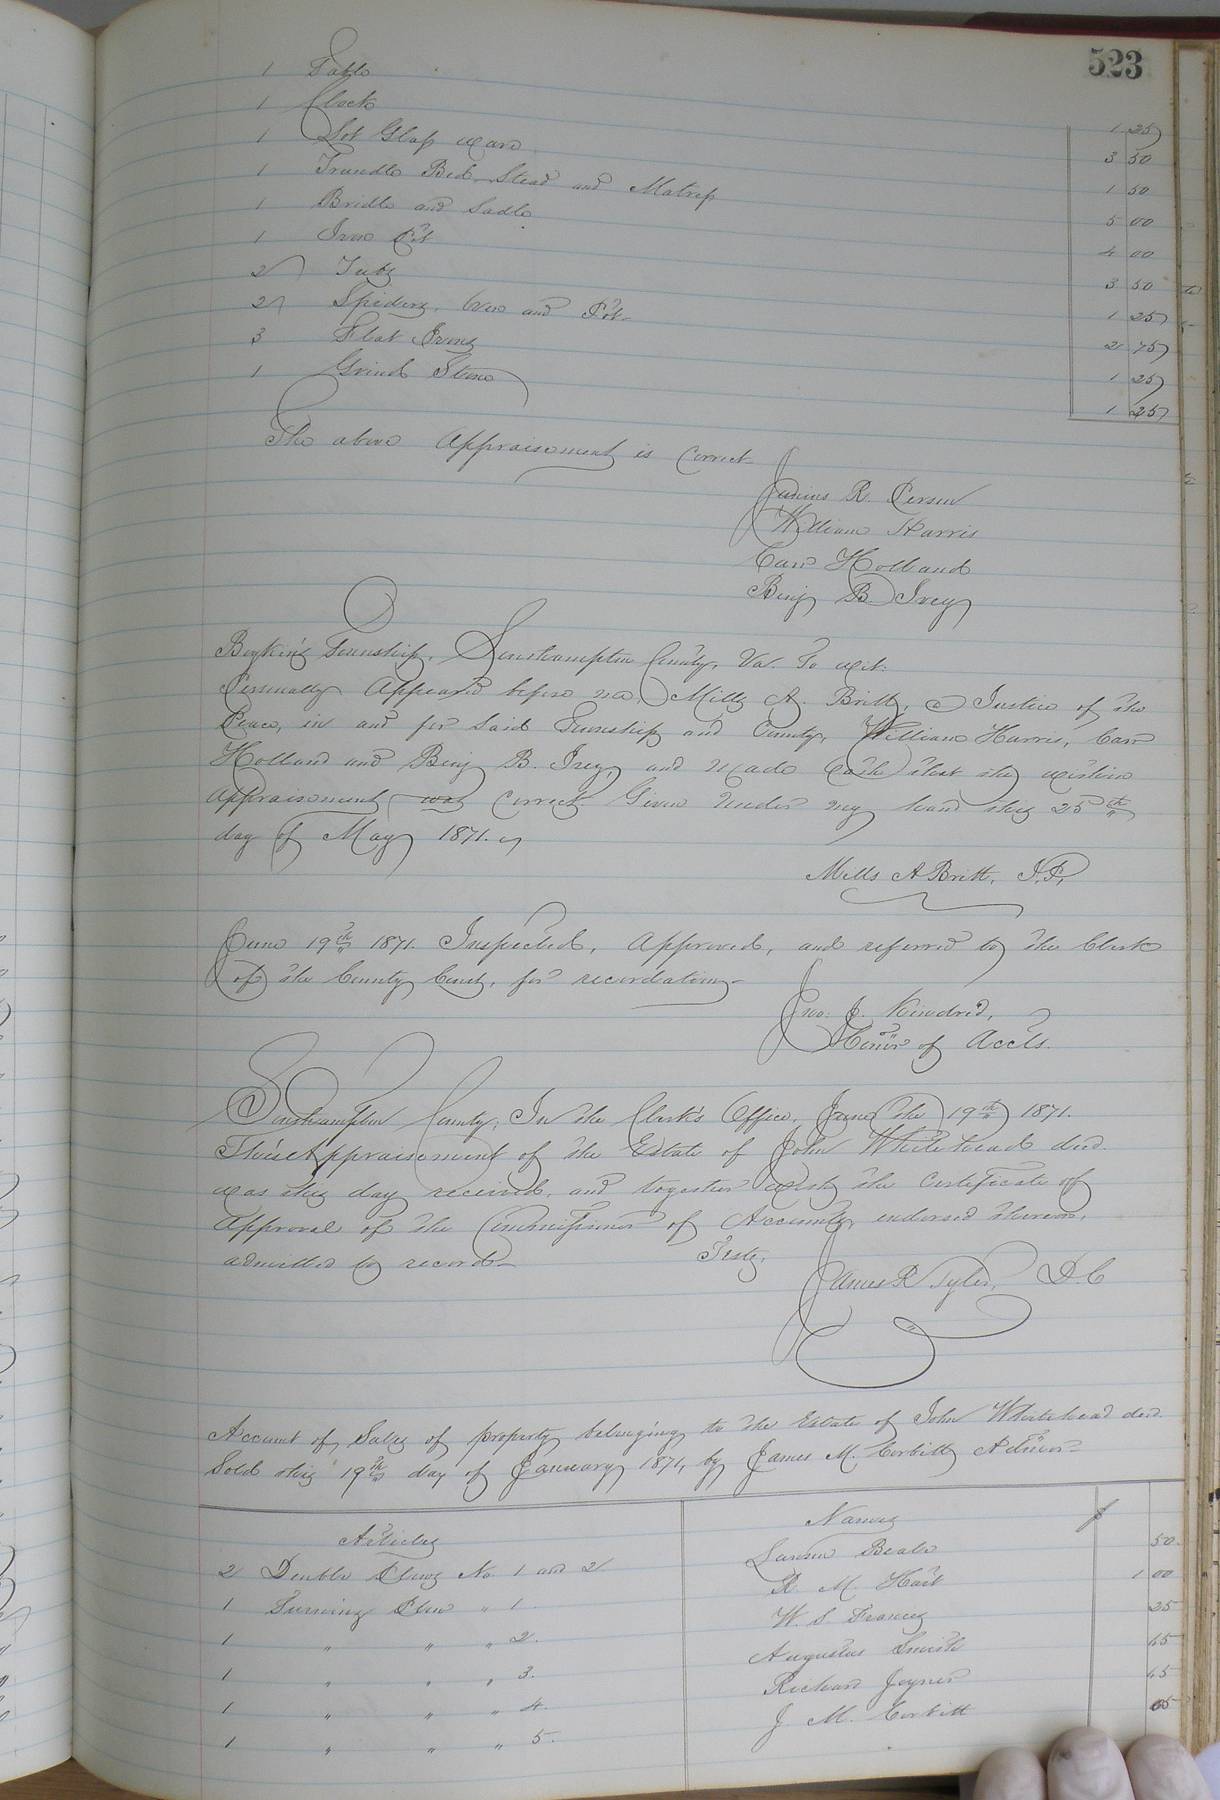 523
1 Table 1 25
1 Clock 3 50
1 Lot Glass ware 1 50
1 Trundle Bed-Stead and Matress 5 00
1 Bridle and Sadle 4 00
1 Iron Pot 3 50
2 Tubs 1 25
2 Spiders, Oven and Pot 2 75
3 Flat Irons 1 25
1 Grind Stone 1 25
The above Appraisement is Correct
Junius R. Person
William Harris
Carr Holland
Benj B. Ivey
Boykins Township, Southampton County, Va. To wit:
Personally Appeared before me, Mills A. Britt, a Justice of the
Peace, in and for said Township and County, William Harris, Carr
Holland and Benj B. Ivey, and made Oath that the within
Appraisement was Correct Given under my hand this 25th
day of May 1871.
Mills A Britt, J.P.
June 19th 1871. Inspected, Approved, and referred to the Clerk
of the County Court, for recordation
Jno. J. Kindred,
Comr of Accts.
Southampton County, In the Clerk's Office, June the 19th 1871.
This Appraisement of the Estate of John Whitehead decd.
was this day received, and together with the Certificate of
Approval of the Commissioner of Accounts, endorsed thereon,
admitted to record
Teste,
James R Tyler, D.C
Account of Sales of property belonging to the Estate of John Whitehead decd.
Sold this 19th day of January 1871, by James M. Corbitt Admr
Articles Names $
2 Double Plows No. 1 and 2 Lawson Beale 50
1 Turning Plow " 1. R. M. Hart 1 00
1 " " " 2. W. S. Francis 25
1 " " " 3. Augustus Smith 45
1 " " " 4. Richard Joyner 45
1 " " " 5. J. M. Corbitt 05